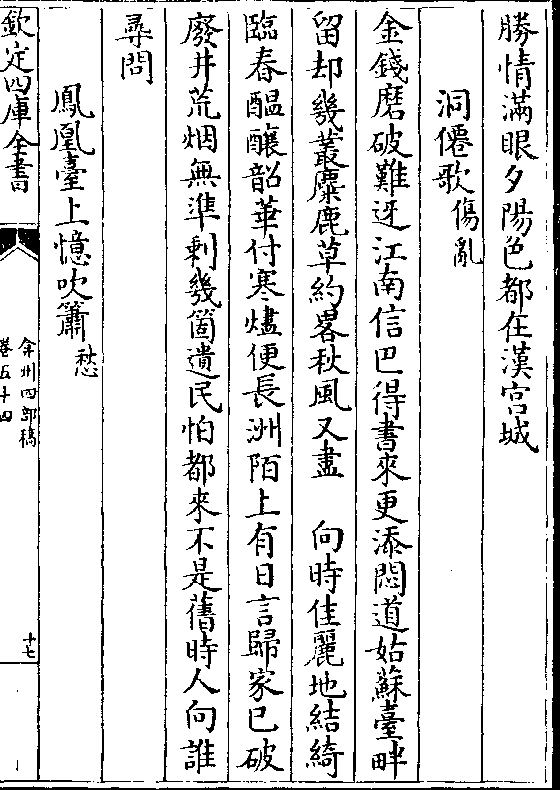 勝情滿眼夕陽色都在漢宫城
洞僊歌傷亂
金錢磨破難迓江南信巴得書來更添悶道姑蘇臺畔
留却幾叢麋鹿草約畧秋風又盡　向時佳麗地結綺
臨春醖釀韶華付寒燼便長洲陌上有日言歸家已破
廢井荒烟無準剩幾箇遺民怕都來不是舊時人向誰
尋問
鳳凰臺上憶吹簫愁
欽定四庫全書
弇州四部稿
卷五十四
十七